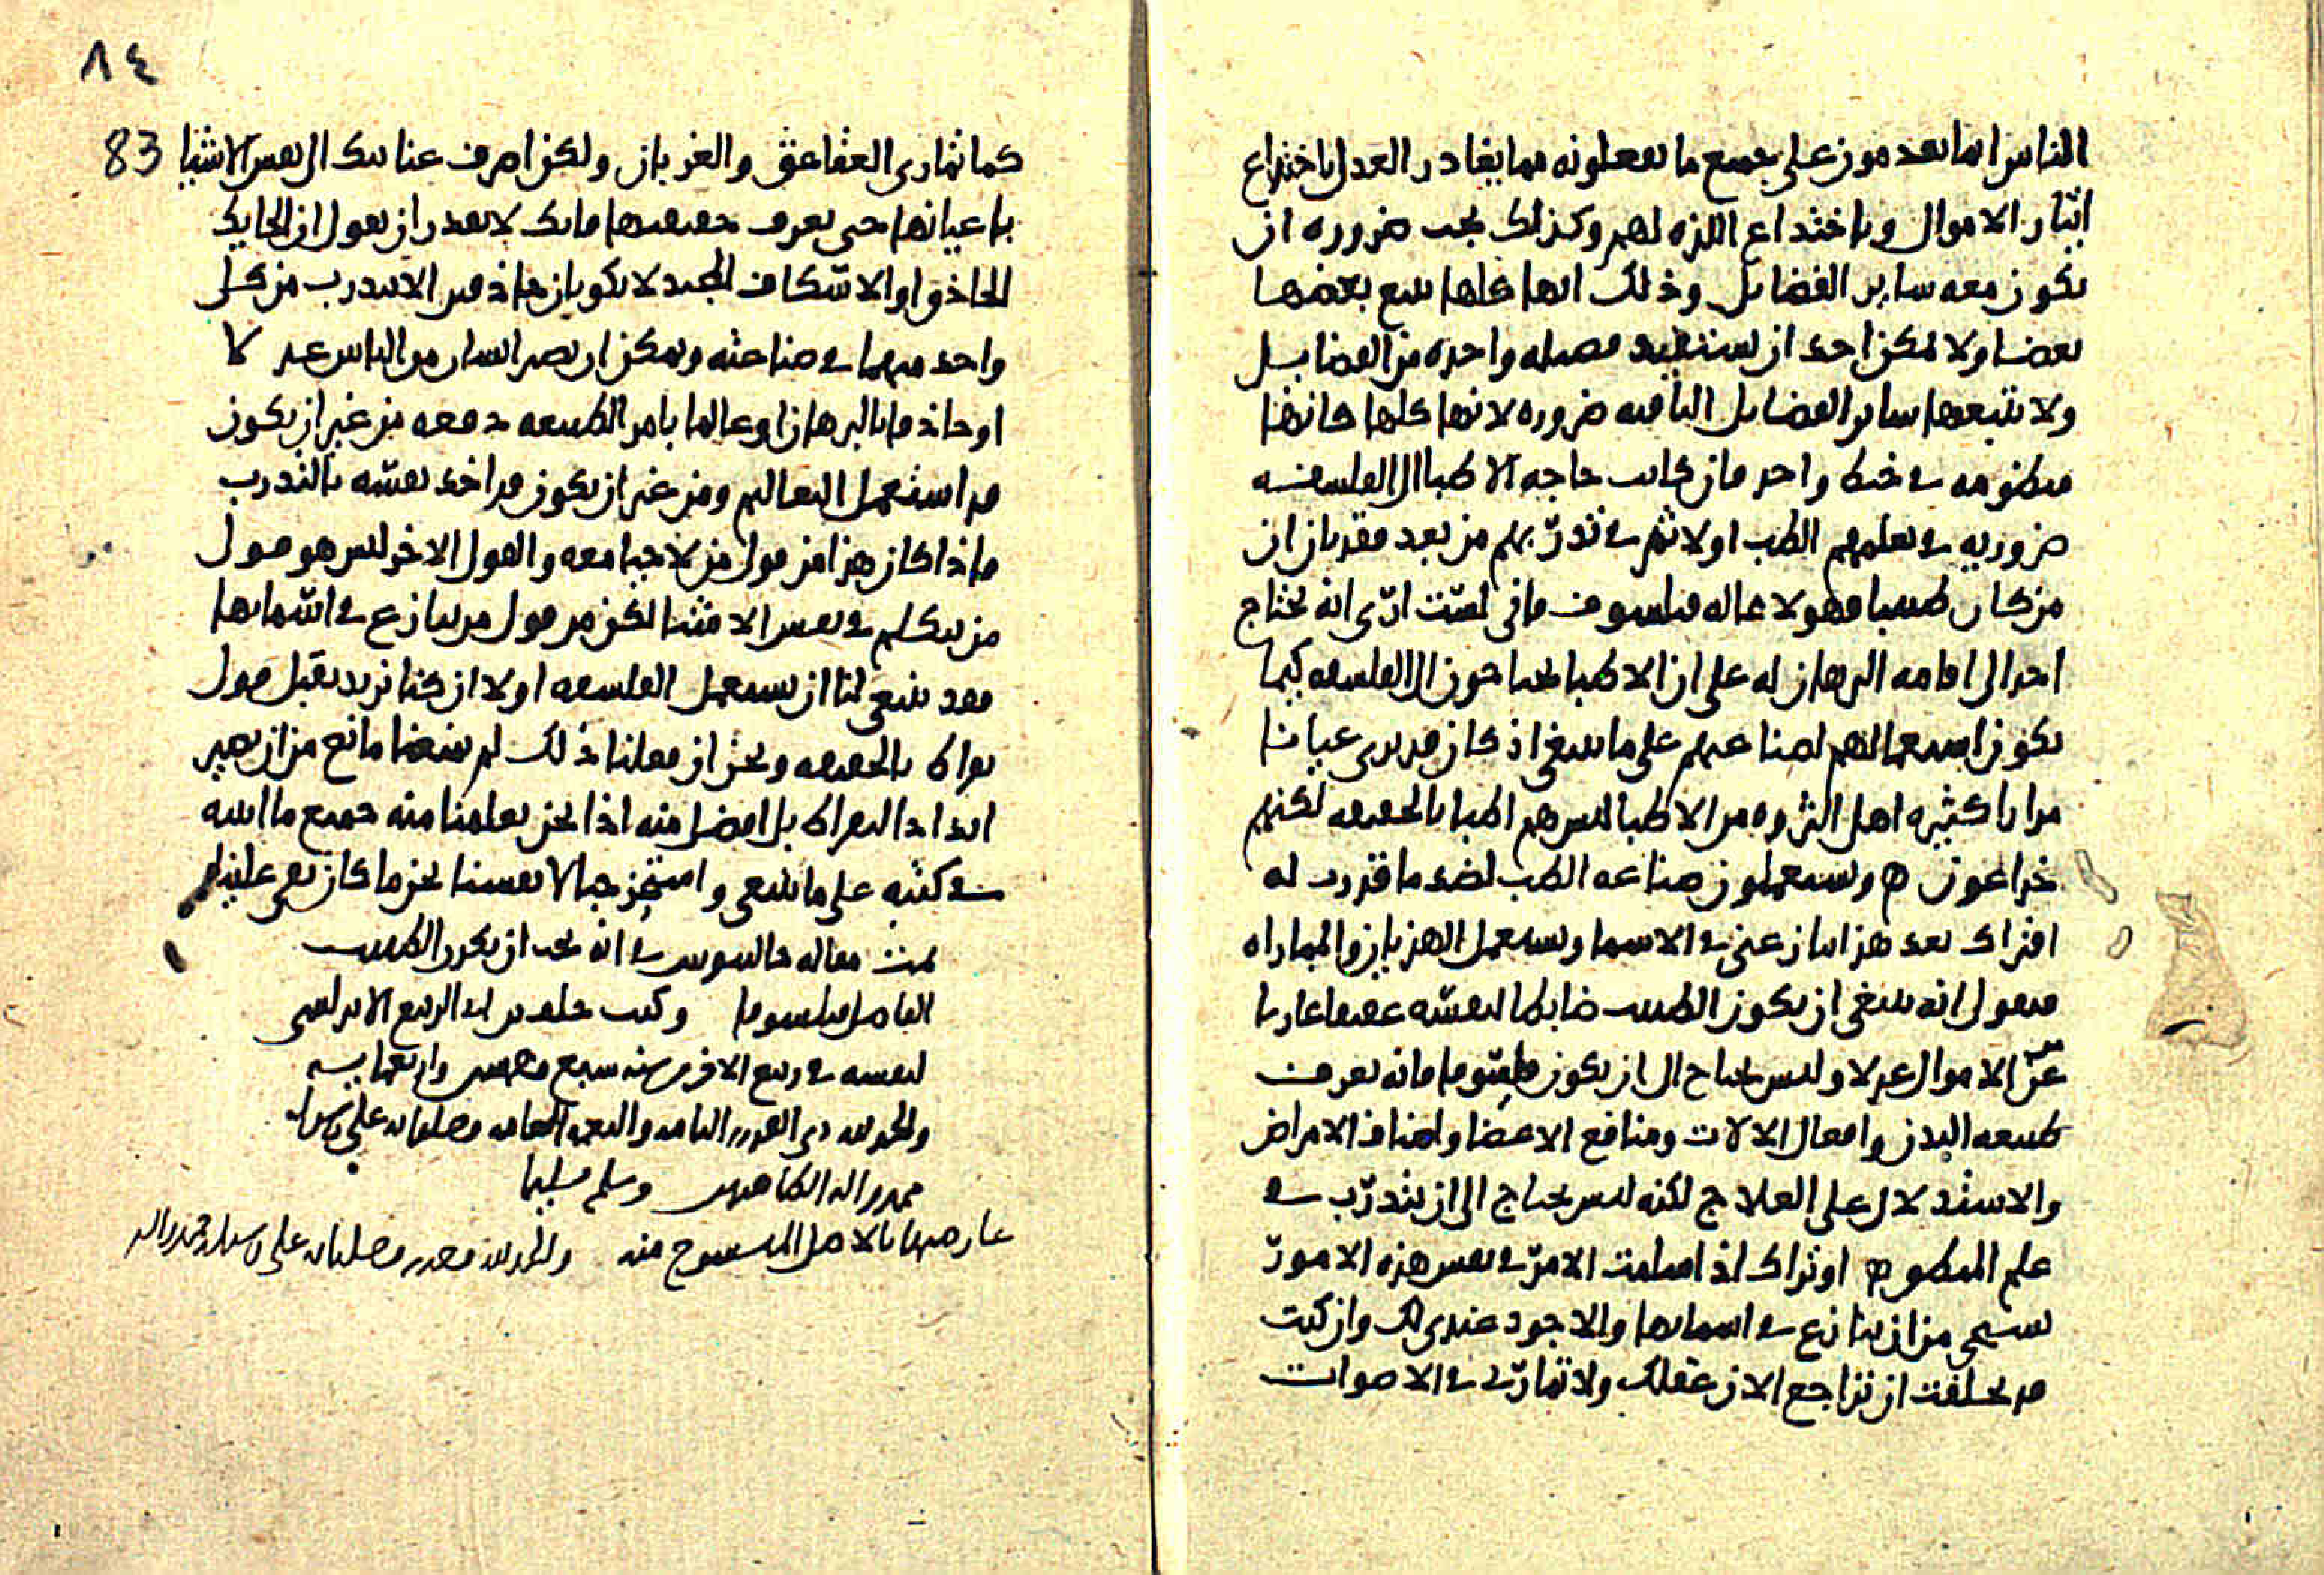 الناس انما يقدمون على جميع ما يفعلونه مما يغادر العدل باختداع
ايثار الاموال وباختداع اللذه لهم وكذلك يجب ضروره ان
يكون معه ساير الفضايل وذلك انها كلها يتبع بعضها
بعضا ولا يمكن احد ان يستفيد فضيله واحده من الفضايل
ولا تتبعها ساير الفضايل الباقيه ضروره لانها كلها كانها
منظومه في خيط واحد فان كانت حاجه الاطبا الى الفلسفه
ضروريه في تعلمهم الطب اولا ثم في تدربهم من بعد فقد بان ان
من كان طبيبا فهو لا محاله فيلسوف فاني لست ارى انه يحتاج
احد الى اقامه البرهان له على ان الاطبا يحتاجون الى الفلسفه كيما
يكون استعمالهم لصناعتهم على ما ينبغي اذ كان قد يرى عيانا
مرارا كثيره اهل الثروه من الاطبا ليس هم اطبا بالحقيقه لكنهم
خداعون ه ويستعملون صناعه الطب لضد ما قدرت له
افتراك بعد هذا تنازعني في الاسما وتستعمل الهذيان والمماراه
فتقول انه ينبغي ان يكون الطبيب ضابطا لنفسه عفيفا عاريا
عن الاموال عدلا وليس يحتاج الى ان يكون فيلسوفا فانه يعرف
طبيعه البدن وافعال الالات ومنافع الاعضا واصناف الامراض
والاستدلال على العلاج لكنه ليس يحتاج الى ان يتدرب في
علم المنطق ه اوتراك اذ سلمت الامر في نفس هذه الامور
تستحي من ان تنازع في اسمايها والاجود عندي لك وان كنت
قد تخلفت ان تراجع الان عقلك ولا تماري في الاصوات
٨٤
83
كما تماري العقاعق والغربان ولكن اصرف عنايتك الى نفس الاشيا
باعيانها حتى تعرف حقيقتها فانك لا تقدر ان تقول ان الحايك
الحاذق او الاسكاف المجيد لا يكونان حاذقين الا بتدرب من كل
واحد منهما في صناعته ويمكن ان يصير انسان من الناس عدلا
او حاذقا بالبرهان او عالما بامر الطبيعه دفعه من غير ان يكون
قد استعمل التعاليم ومن غير ان يكون قد اخذ نفسه بالتدرب
فاذا كان هذا من قول من لا حيا معه والقول الاخر ليس هو قول
من يتكلم في نفس الاشيا لكن من قول من ينازع في اسمايها
فقد ينبغي لنا ان نستعمل الفلسفه اولا ان كنا نريد تقبل قول
بقراط بالحقيقه ونحن ان فعلنا ذلك لم يمنعنا مانع من ان نصير
اندادا لبقراط بل افضل منه اذا نحن تعلمنا منه جميع ما اثبته
في كتبه على ما ينبغي واستخرجنا لانفسنا نحن ما كان بقي علينا
تمت مقاله جالينوس في انه يجب ان يكون الطبيب
الفاضل فيلسوفا وكتب
لنفسه في ربيع الاخر سنه سبع
والحمد لله ذي القدره التامه والنعمه العامه وصلواته على رسوله
محمد واله الطاهرين وسلم تسليما
عارضتها بالاصل المنسوخ منه والحمد لله وحده وصلواته على رسوله محمد واله